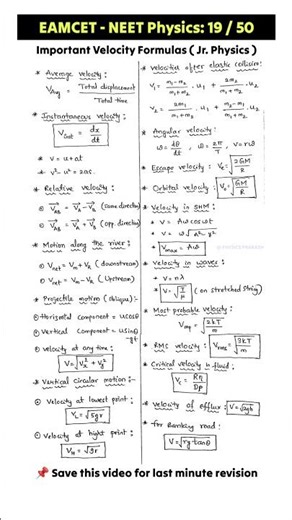 EAMCET - NEET Physics: 19 / 50
Important Velocity Formulas ( Jr. Physics )
* Average velocity:
Vavg = Total displacement / Total time
* Instantaneous velocity:
Vinst = dx/dt
* v = u + at
* v² - u² = 2as.
* Relative velocity:
① VAB = VA - VB (same direction)
② VAB = VA + VB (opp. direction)
* Motion along the river:
① Vnet = Vm + VR (downstream)
② Vnet = Vm - VR (Upstream)
* Projectile motion (Oblique):-
① Horizontal component = ucosθ
② Vertical component = usinθ - gt
③ velocity at any time:
V = √Vx² + Vy²
* Vertical circular motion:-
① Velocity at lowest point:
VL = √5gr
② Velocity at hight point:
VH = √gr
* Velocities after elastic collision:
V₁ = m₁ - m₂ / m₁ + m₂ . u₁ + 2m₂ / m₁ + m₂ . u₂
V₂ = 2m₁ / m₁ + m₂ . u₁ + m₂ - m₁ / m₁ + m₂ . u₂
* Angular velocity:
ω = dθ/dt , ω = 2π/T , V = rω
* Escape velocity: Ve = √2GM/R
* Orbital velocity: Vo = √GM/R
* Velocity in SHM:
* V = Aω cosωt
* V = ω√A² - y²
* Vmax = Aω
* Velocity in waves:
* V = nλ
* V = √T/μ (on stretched string)
* Most probable velocity:
Vmp = √2kT/m
* RMS velocity: Vrms = √3kT/m
* Critical velocity in fluid:
Vc = Rη/Dρ
* Velocity of efflux: V = √2gh
* for Banking road:
V = √rg tanθ
📌 Save this video for last minute revision